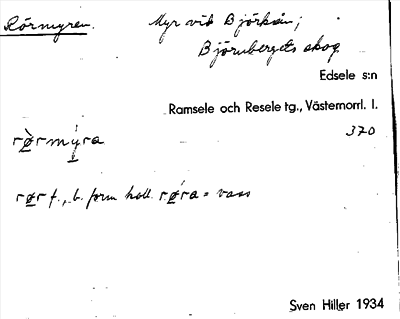 Rörmyren. Myr vid Björkån;
Björnbergets skog
Edsele s:n
Ramsele och Resele tg., Västernorrl. l.
370
rø̀rmýra
rør f., b. form koll. rǿra = vass
Sven Hiller 1934